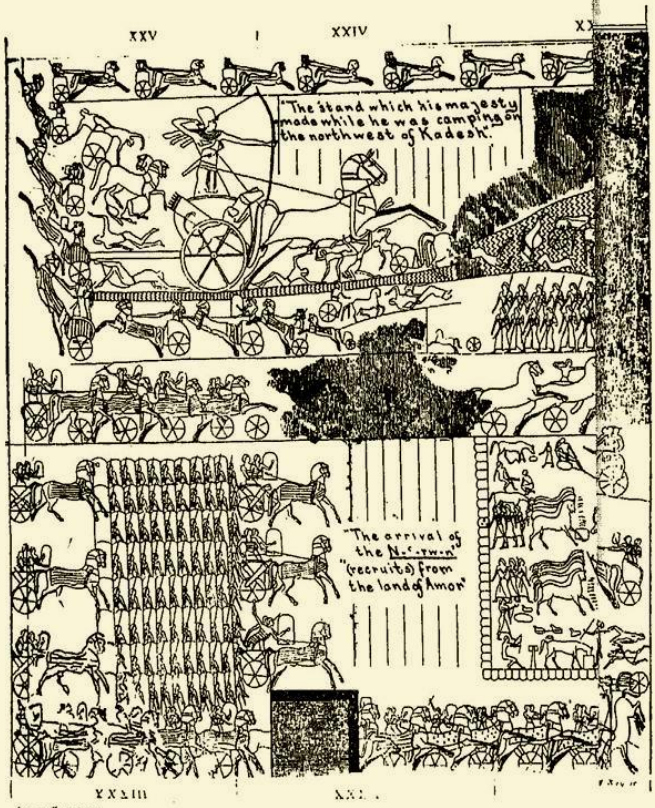 XXV
XXIV
XX
"The stand which his majesty
made while he was camping on
the northwest of Kadesh".
"The arrival of
the N-ʿ-rw-nʾ
(recruits) from
the land of Amor"
XXXIII